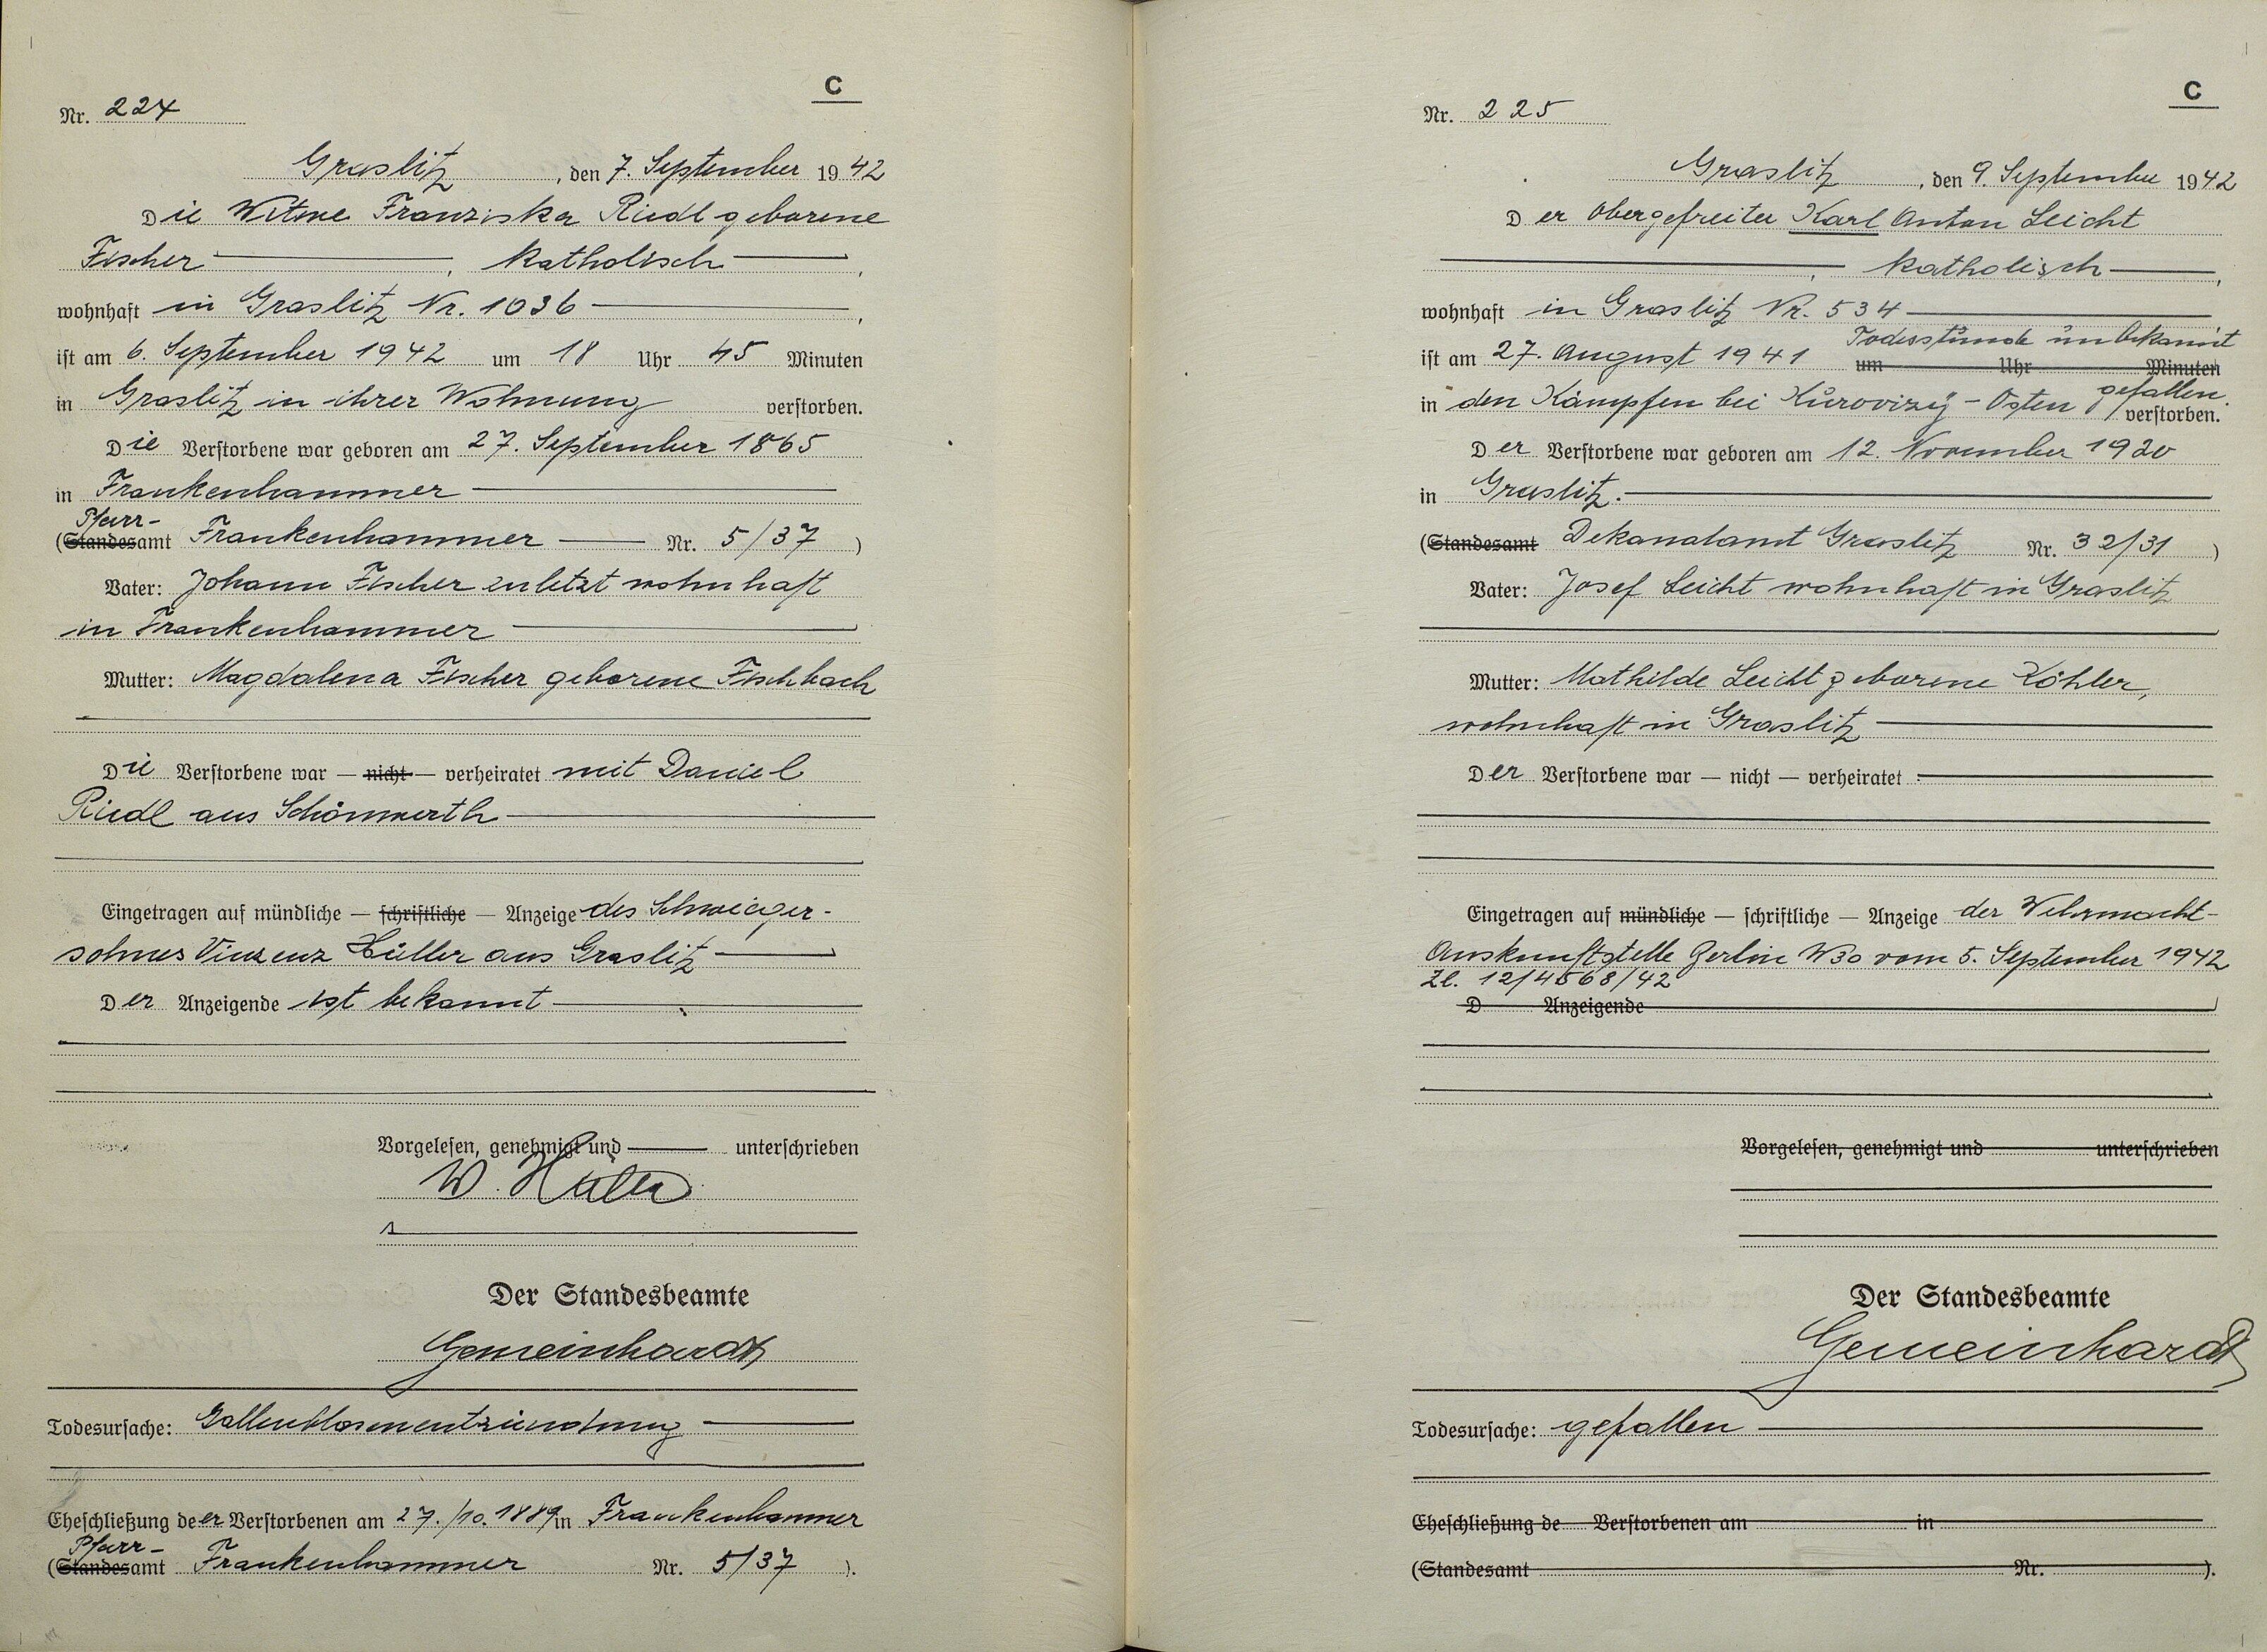 C
Nr. 224
Graslitz, den 7. September 1942
Die Witwe Franziska Riedl geborene
Fischer, katholisch,
wohnhaft in Graslitz Nr. 1036,
ist am 6. September 1942 um 18 Uhr 45 Minuten
in Graslitz in ihrer Wohnung verstorben.
Die Verstorbene war geboren am 27. September 1865
in Frankenhammer
Pfarr-
(Standesamt Frankenhammer Nr. 5/37)
Vater: Johann Fischer zuletzt wohnhaft
in Frankenhammer
Mutter: Magdalena Fischer geborene Fischbach
Die Verstorbene war — nicht — verheiratet mit Daniel
Riedl aus Schönwerth
Eingetragen auf mündliche — schriftliche — Anzeige des Schwieger-
sohnes Vinzenz Hüller aus Graslitz
Der Anzeigende ist bekannt
Vorgelesen, genehmigt und unterschrieben
Der Standesbeamte
Gemeinhardt
Todesursache: Gallenblasenentzündung
Eheschließung der Verstorbenen am 27./10.1889 in Frankenhammer
Pfarr-
(Standesamt Frankenhammer Nr. 5/37).
C
Nr. 225
Graslitz, den 9. September 1942
Der Obergefreiter Karl Anton Leicht
, katholisch,
wohnhaft in Graslitz Nr. 534
Todesstunde unbekannt
ist am 27. August 1941 um Uhr Minuten
gefallen.
in den Kämpfen bei Kurovizy - Osten verstorben.
Der Verstorbene war geboren am 12. November 1920
in Graslitz.
(Standesamt Dekanalamt Graslitz Nr. 32/31)
Vater: Josef Leicht wohnhaft in Graslitz
Mutter: Mathilde Leicht geborene Köhler,
wohnhaft in Graslitz
Der Verstorbene war — nicht — verheiratet
Eingetragen auf mündliche — schriftliche — Anzeige der Wehrmacht-
Auskunftstelle Berlin W30 vom 5. September 1942
Zl. 12/4568/42
D Anzeigende
Vorgelesen, genehmigt und unterschrieben
Der Standesbeamte
Gemeinhardt
Todesursache: gefallen
Eheschließung de Verstorbenen am in
(Standesamt Nr. ).